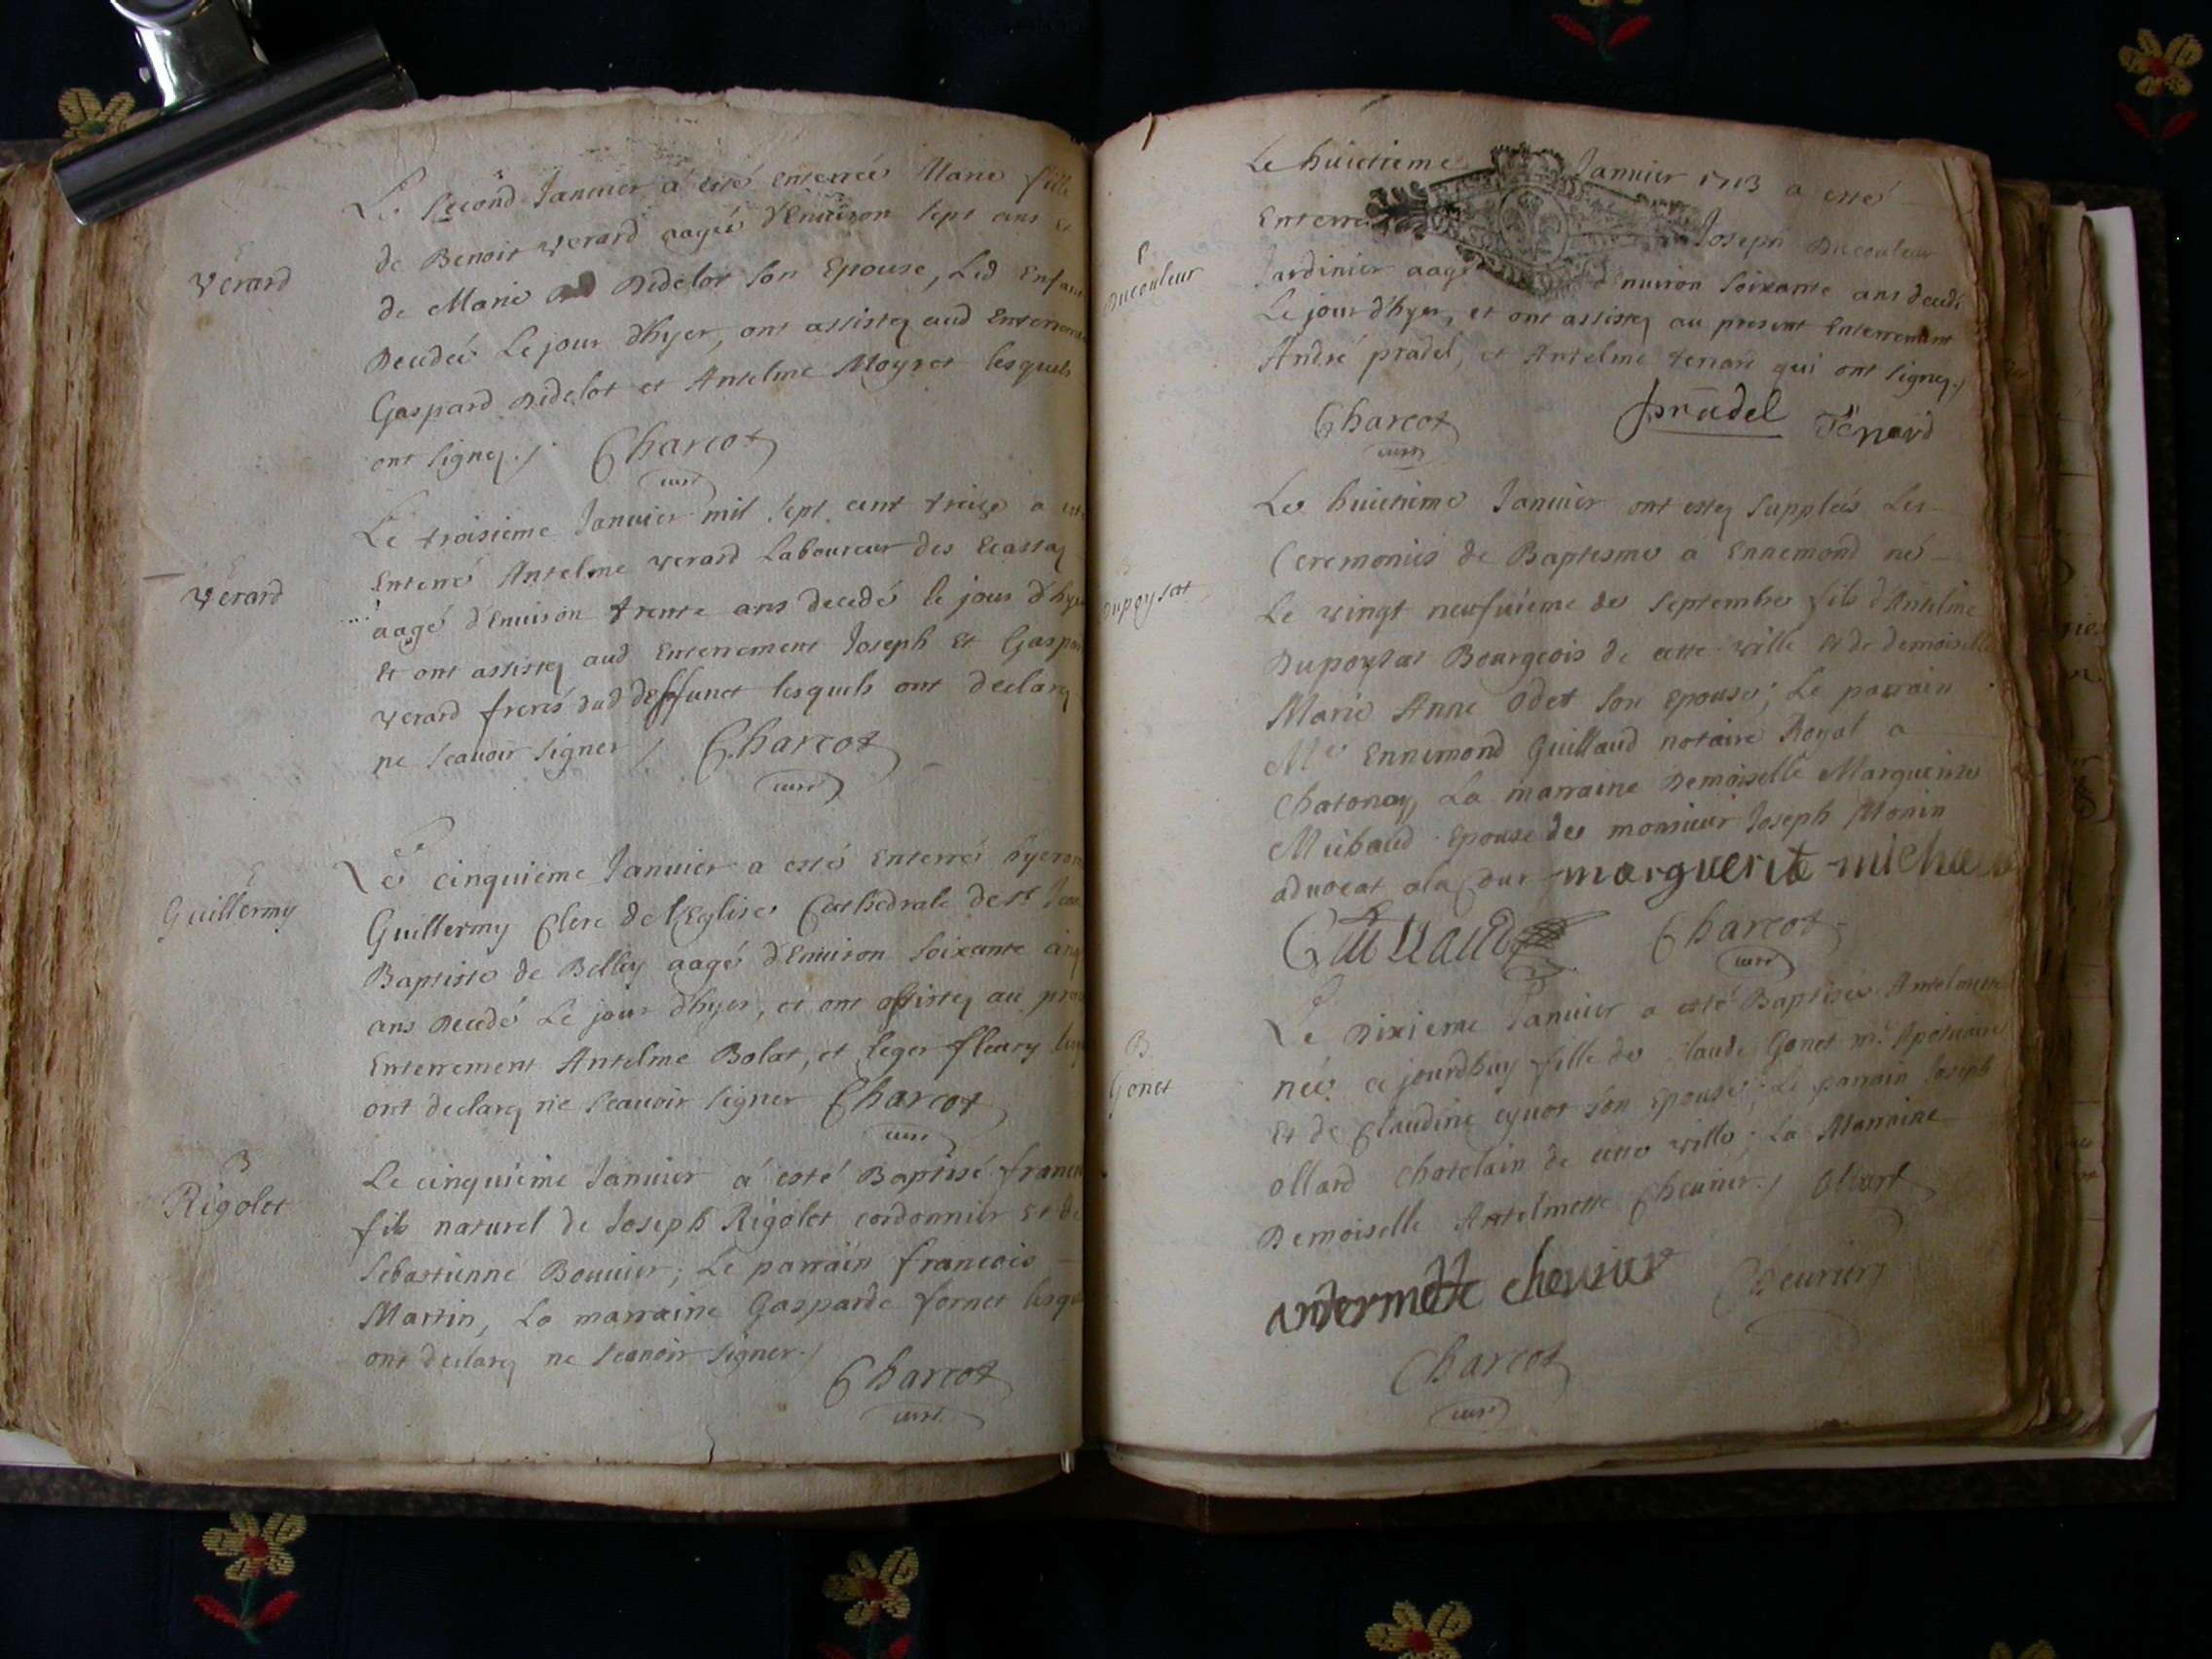 Le second Janvier a esté enterrée Marie fille
de Benoit verard aagée d'Environ sept ans et
de Marie Didelot son Epouse, Led Enfant
Decedée Le jour d'hyer, ont assistez aud Enterrement
Gaspard Didelot et Antelme Moyret lesquels
ont signez ./ Charcot
curé
E
verard
Le troisieme Janvier mil sept cent treize a esté
Enterré Antelme verard Laboureur des Ecassaz
aagé d'Environ trente ans decedé le jour d'hyer
Et ont assistez aud Enterrement Joseph Et Gaspard
verard freres dud deffunct lesquels ont declarez
ne scavoir signer / Charcot
curé
E
verard
Le cinquieme Janvier a esté Enterré hyerome
Guillermy Clerc de l'Eglise Cathedrale de st Jean
Baptiste de Belley aagé d'Environ soixante cinq
ans Decedé Le jour d'hyer, et ont assistez au present
Enterrement Antelme Bolat, et leger fleury
ont declarez ne scavoir signer Charcot
curé
E
Guillermy
Le cinquieme Janvier a esté Baptisé francois
fils naturel de Joseph Rigolet cordonnier et de
Sebastienne Bouvier; Le parrain francois
Martin, La marraine Gasparde fornet lesquels
ont declarez ne scavoir signer ./
Charcot
curé
B
Rigolet
Le huictieme Janvier 1713 a esté
Enterré Joseph Ducouleur
Jardinier aagé d'Environ soixante ans decedé
Le jour d'hyer, et ont assistez au present Enterrement
André pradel, et Antelme tenard qui ont signez ./
Charcot pradel Tenard
curé
E
Ducouleur
Le huictieme Janvier ont estez suppleés Les
Ceremonies de Baptesme a Ennemond né
Le vingt neufvieme de septembre fils d'Antelme
Dupoysat Bourgeois de cette ville et de demoiselle
Marie Anne Odet son epouse; Le parrain
Me Ennemond Guillaud notaire Royal a
Chatonay, La marraine Demoiselle Marguerite
Michaud Epouse de monsieur Joseph Monin
advocat a la Cour marguerite michaud
Guillaud Charcot
curé
Dupoysat
Le Dixieme Janvier a esté Baptisée Antelmette
née ce jourdhuy fille de Claude Gonet me Apoticaire
Et de Claudine cynot son Epouse; Le parrain Joseph
Ollard Chatelain de cette ville; La Marraine
Demoiselle Antelmette Chevrier ./ Ollard
antermette chevrier Chevrier
Charcot
curé
B
Gonet